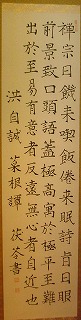 禪宗曰饑来喫飯倦来眠詩旨曰眼
前景致口頭語蓋極高寓於極平至難
出於至易有意者反遠無心者自近也
洪自誠 菜根譚 書